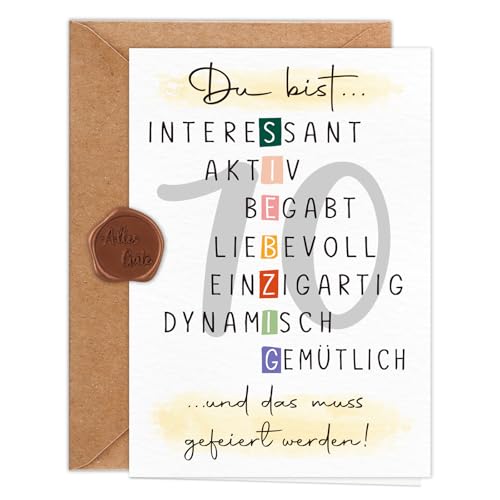 Du bist...
INTERESSANT
AKTIV
BEGABT
LIEBEVOLL
EINZIGARTIG
DYNAMISCH
GEMÜTLICH
70
...und das muss
gefeiert werden!
Alles
Gute